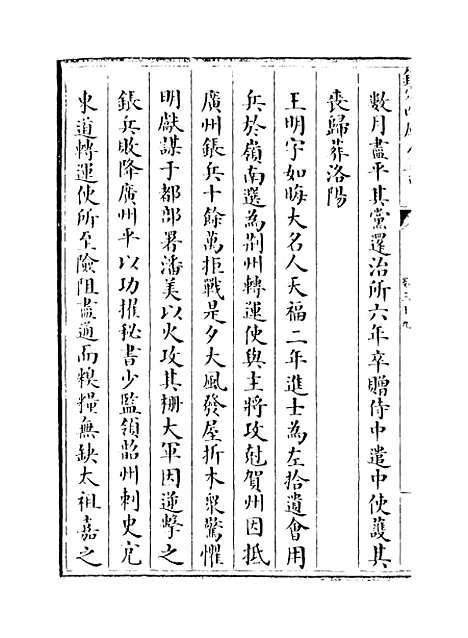 數月盡平其黨還治所六年卒贈侍中遣中使護其
喪歸葬洛陽
王明字如晦大名人天福二年進士為左拾遺會用
兵於嶺南選為荆州轉運使與主將攻尅賀州因抵
廣州鋹兵十餘萬拒戰是夕大風發屋折木衆驚懼
明獻謀于都部署潘美以火攻其柵大軍因逆擊之
鋹兵敗降廣州平以功擢秘書少監領韶州刺史充
東道轉運使所至險阻盡通而糗糧無缺太祖嘉之
卷三十九